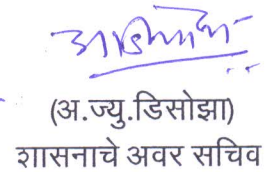 (अ.ज्यु.डिसोझा)
शासनाचे अवर सचिव